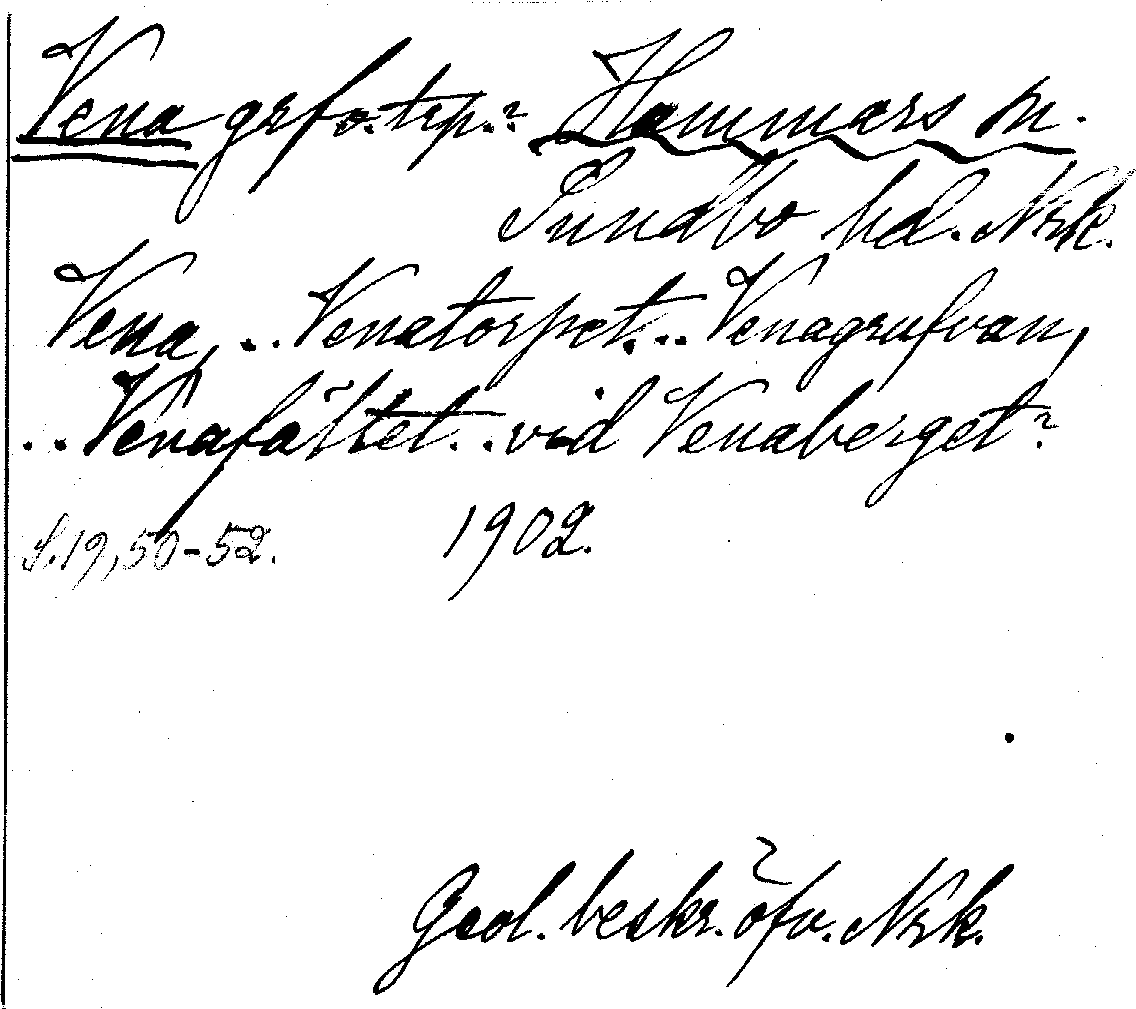 Vena grfo.trp.? Hammars sn.
Sundbo hd. Nrk.
Vena, .. Venatorpet... Venagrufvan,
.. Venafältet.. vid Venaberget?
S.19,50-52. 1902.
Geol. beskr. öfv. Nrk.